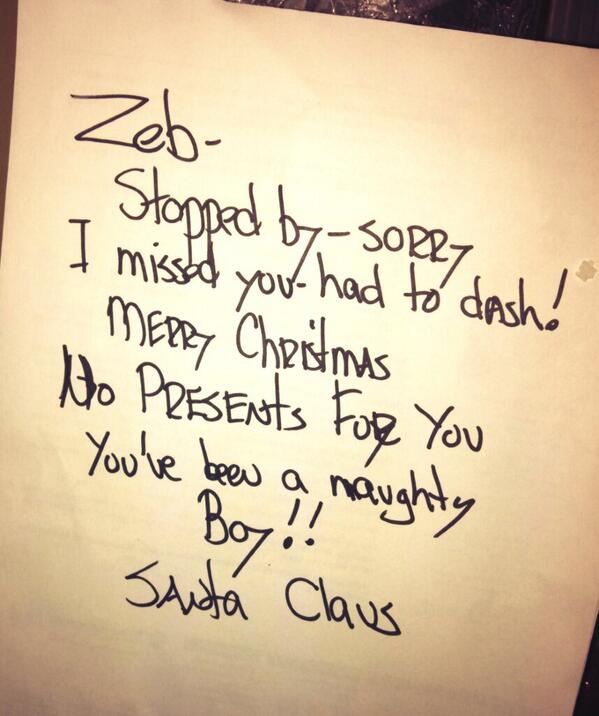 Zeb-
Stopped by - SORRy
I missed you- had to dAsh!
MERRy ChRistmAs
No PRESENts FoR You
You've been a naughty
Boy!!
SANtA Claus